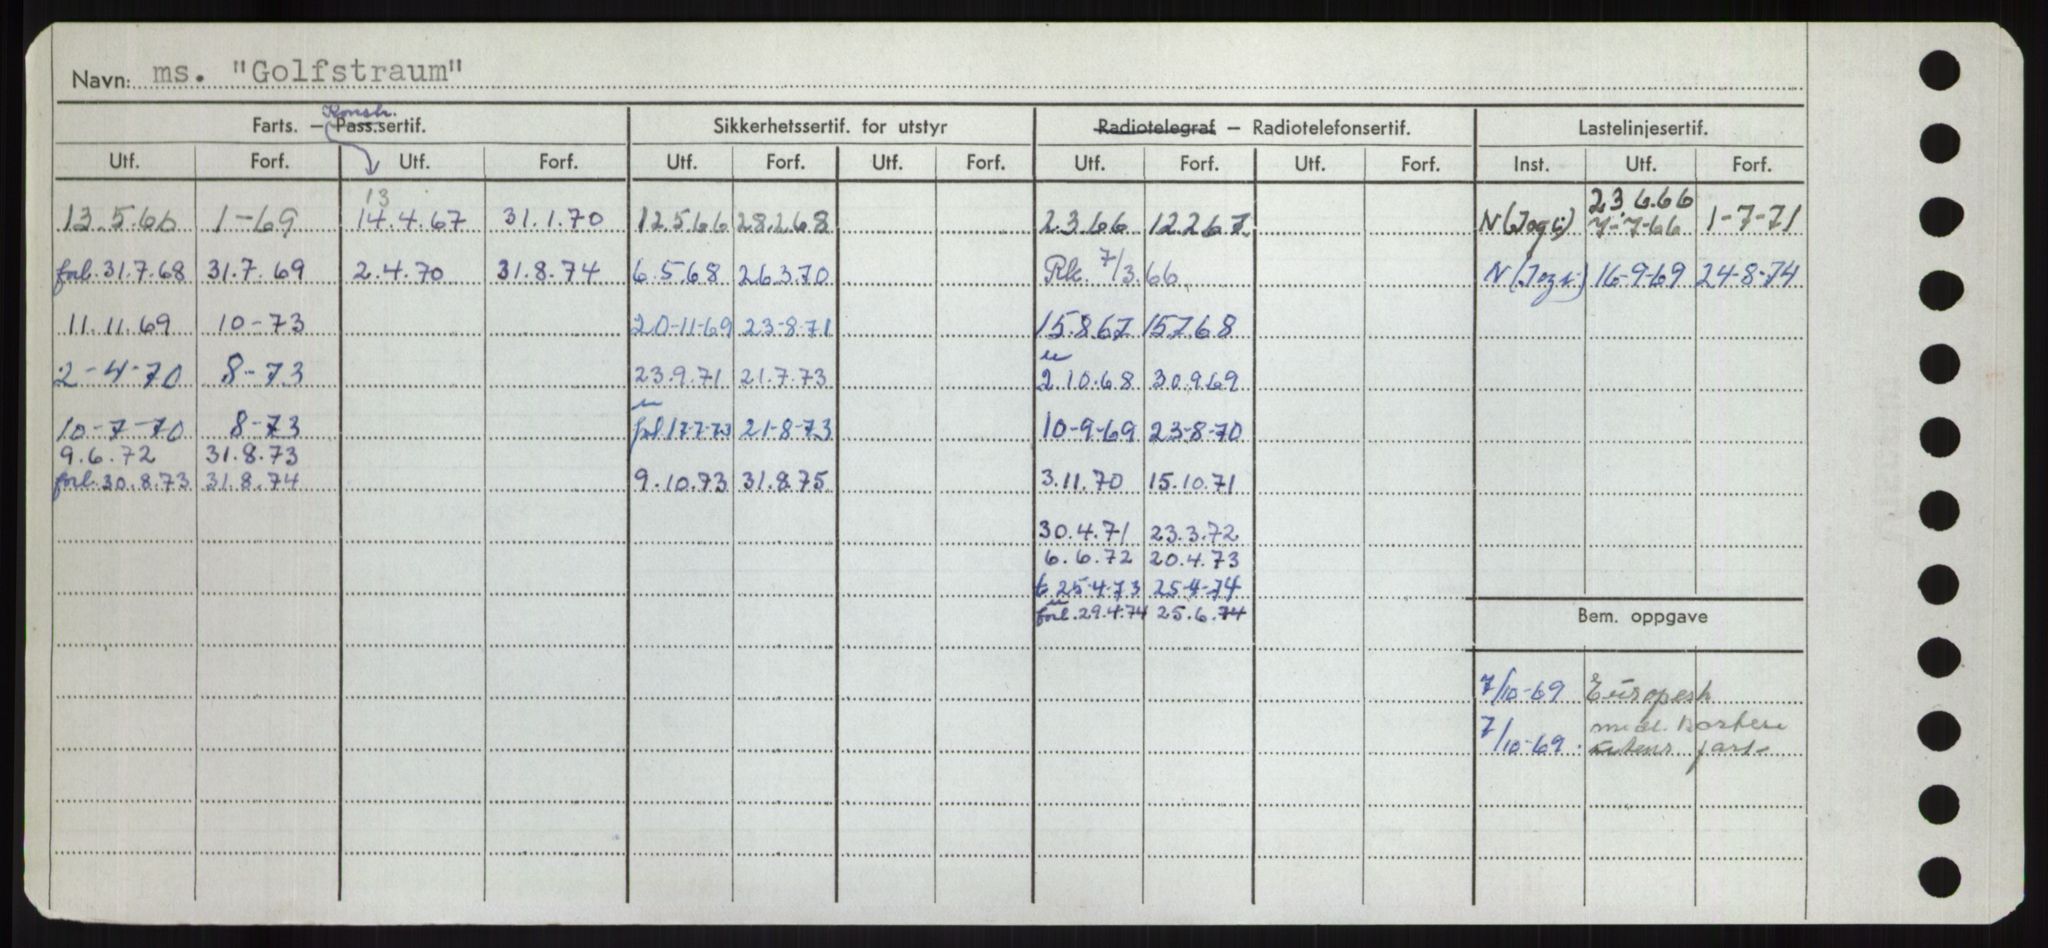 Navn: ms. "Golfstraum"
Konstr.
Farts. – Pass.sertif. Sikkerhetssertif. for utstyr Radiotelegraf – Radiotelefonsertif. Lastelinjesertif.
Utf. Forf. Utf. Forf. Utf. Forf. Utf. Forf. Utf. Forf. Utf. Forf. Inst. Utf. Forf.
13 23.6.66
13.5.66 1-69 14.4.67 31.1.70 12.5.66 28.2.68 2.3.66 12.2.67 N 7-7-66 1-7-71
forl. 31.7.68 31.7.69 2.4.70 31.8.74 6.5.68 26.3.70 Rk. 7/3.66 N 16-9-69 24-8-74
11.11.69 10-73 20-11-69 23-8-71 15.8.67 15.7.68
u
2-4-70 8-73 23.9.71 21.7.73 2.10.68 30.9.69
u
10-7-70 8-73 forl. 17-7-73 21-8-73 10-9-69 23-8-70
9.6.72 31.8.73
forl. 30.8.73 31.8.74 9.10.73 31.8.75 3.11.70 15.10.71
30.4.71 23.3.72
6.6.72 20.4.73
t 25-4-73 25-4-74
u
forl. 29.4.74 25.6.74
Bem. oppgave
7/10-69 Europesk
7/10-69 fart